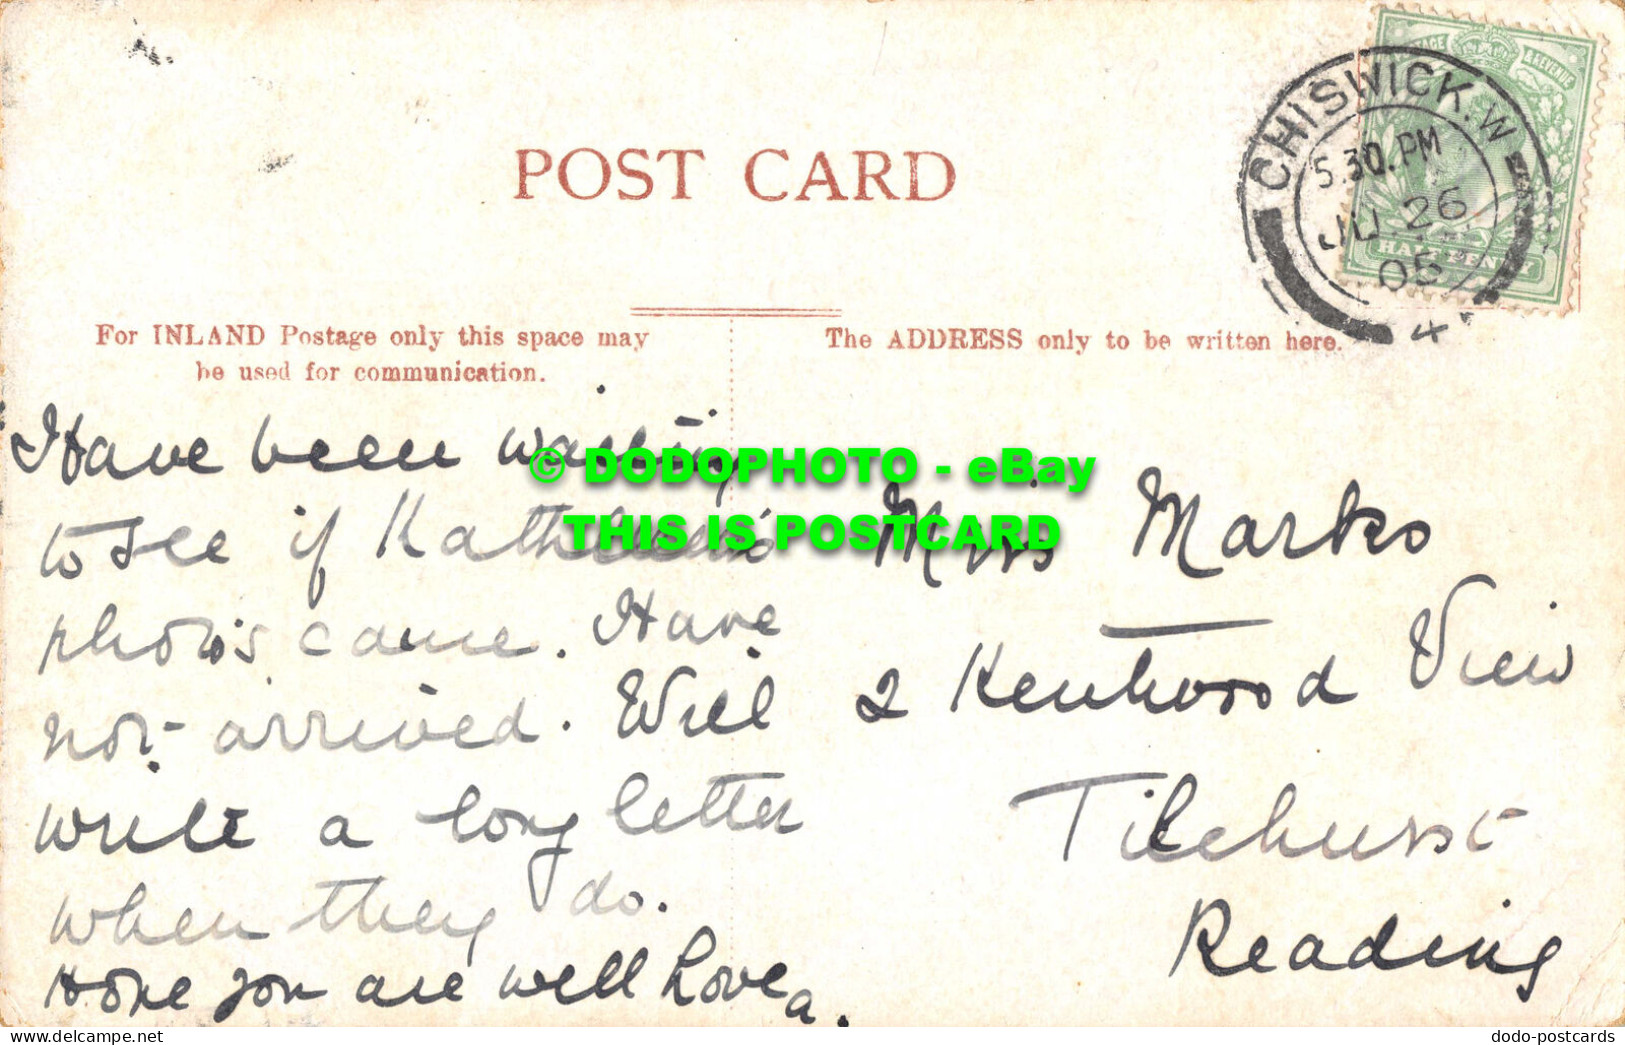 POST CARD
CHISWICK. W
5.30. PM
JU 26
05
4
& REVENUE
HALFPENNY
For INLAND Postage only this space may
be used for communication.
The ADDRESS only to be written here.
© DODOPHOTO - eBay
THIS IS POSTCARD
Have been waiting
to see if Kathleen's
photo's came. Have
not arrived. Will
write a long letter
when they do.
Hope you are well Love
a.
Miss Marks
2 Kentwood View
Tilehurst
Reading
dodo-postcards